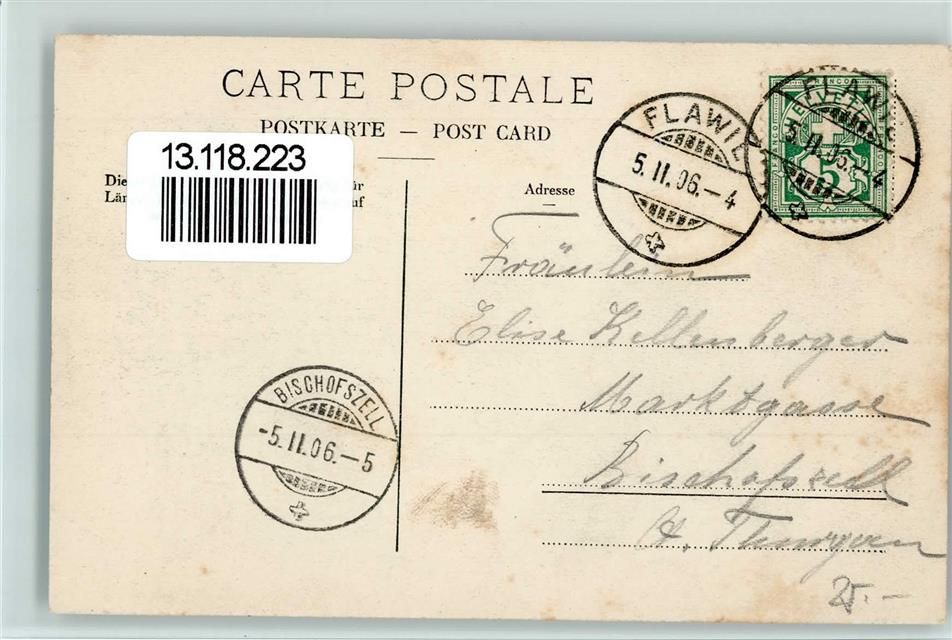 CARTE POSTALE
POSTKARTE — POST CARD
13.118.223
Die
Län
ür
uf
Adresse
FLAWIL
5. II. 06. – 4
FLAWIL
5. II. 06. – 4
FRANCO
HELVETIA
5
Fräulein
Elise Kellenberger
Marktgasse
Bischofszell
Ct. Thurgau
BISCHOFSZELL
-5. II. 06. – 5
25.–